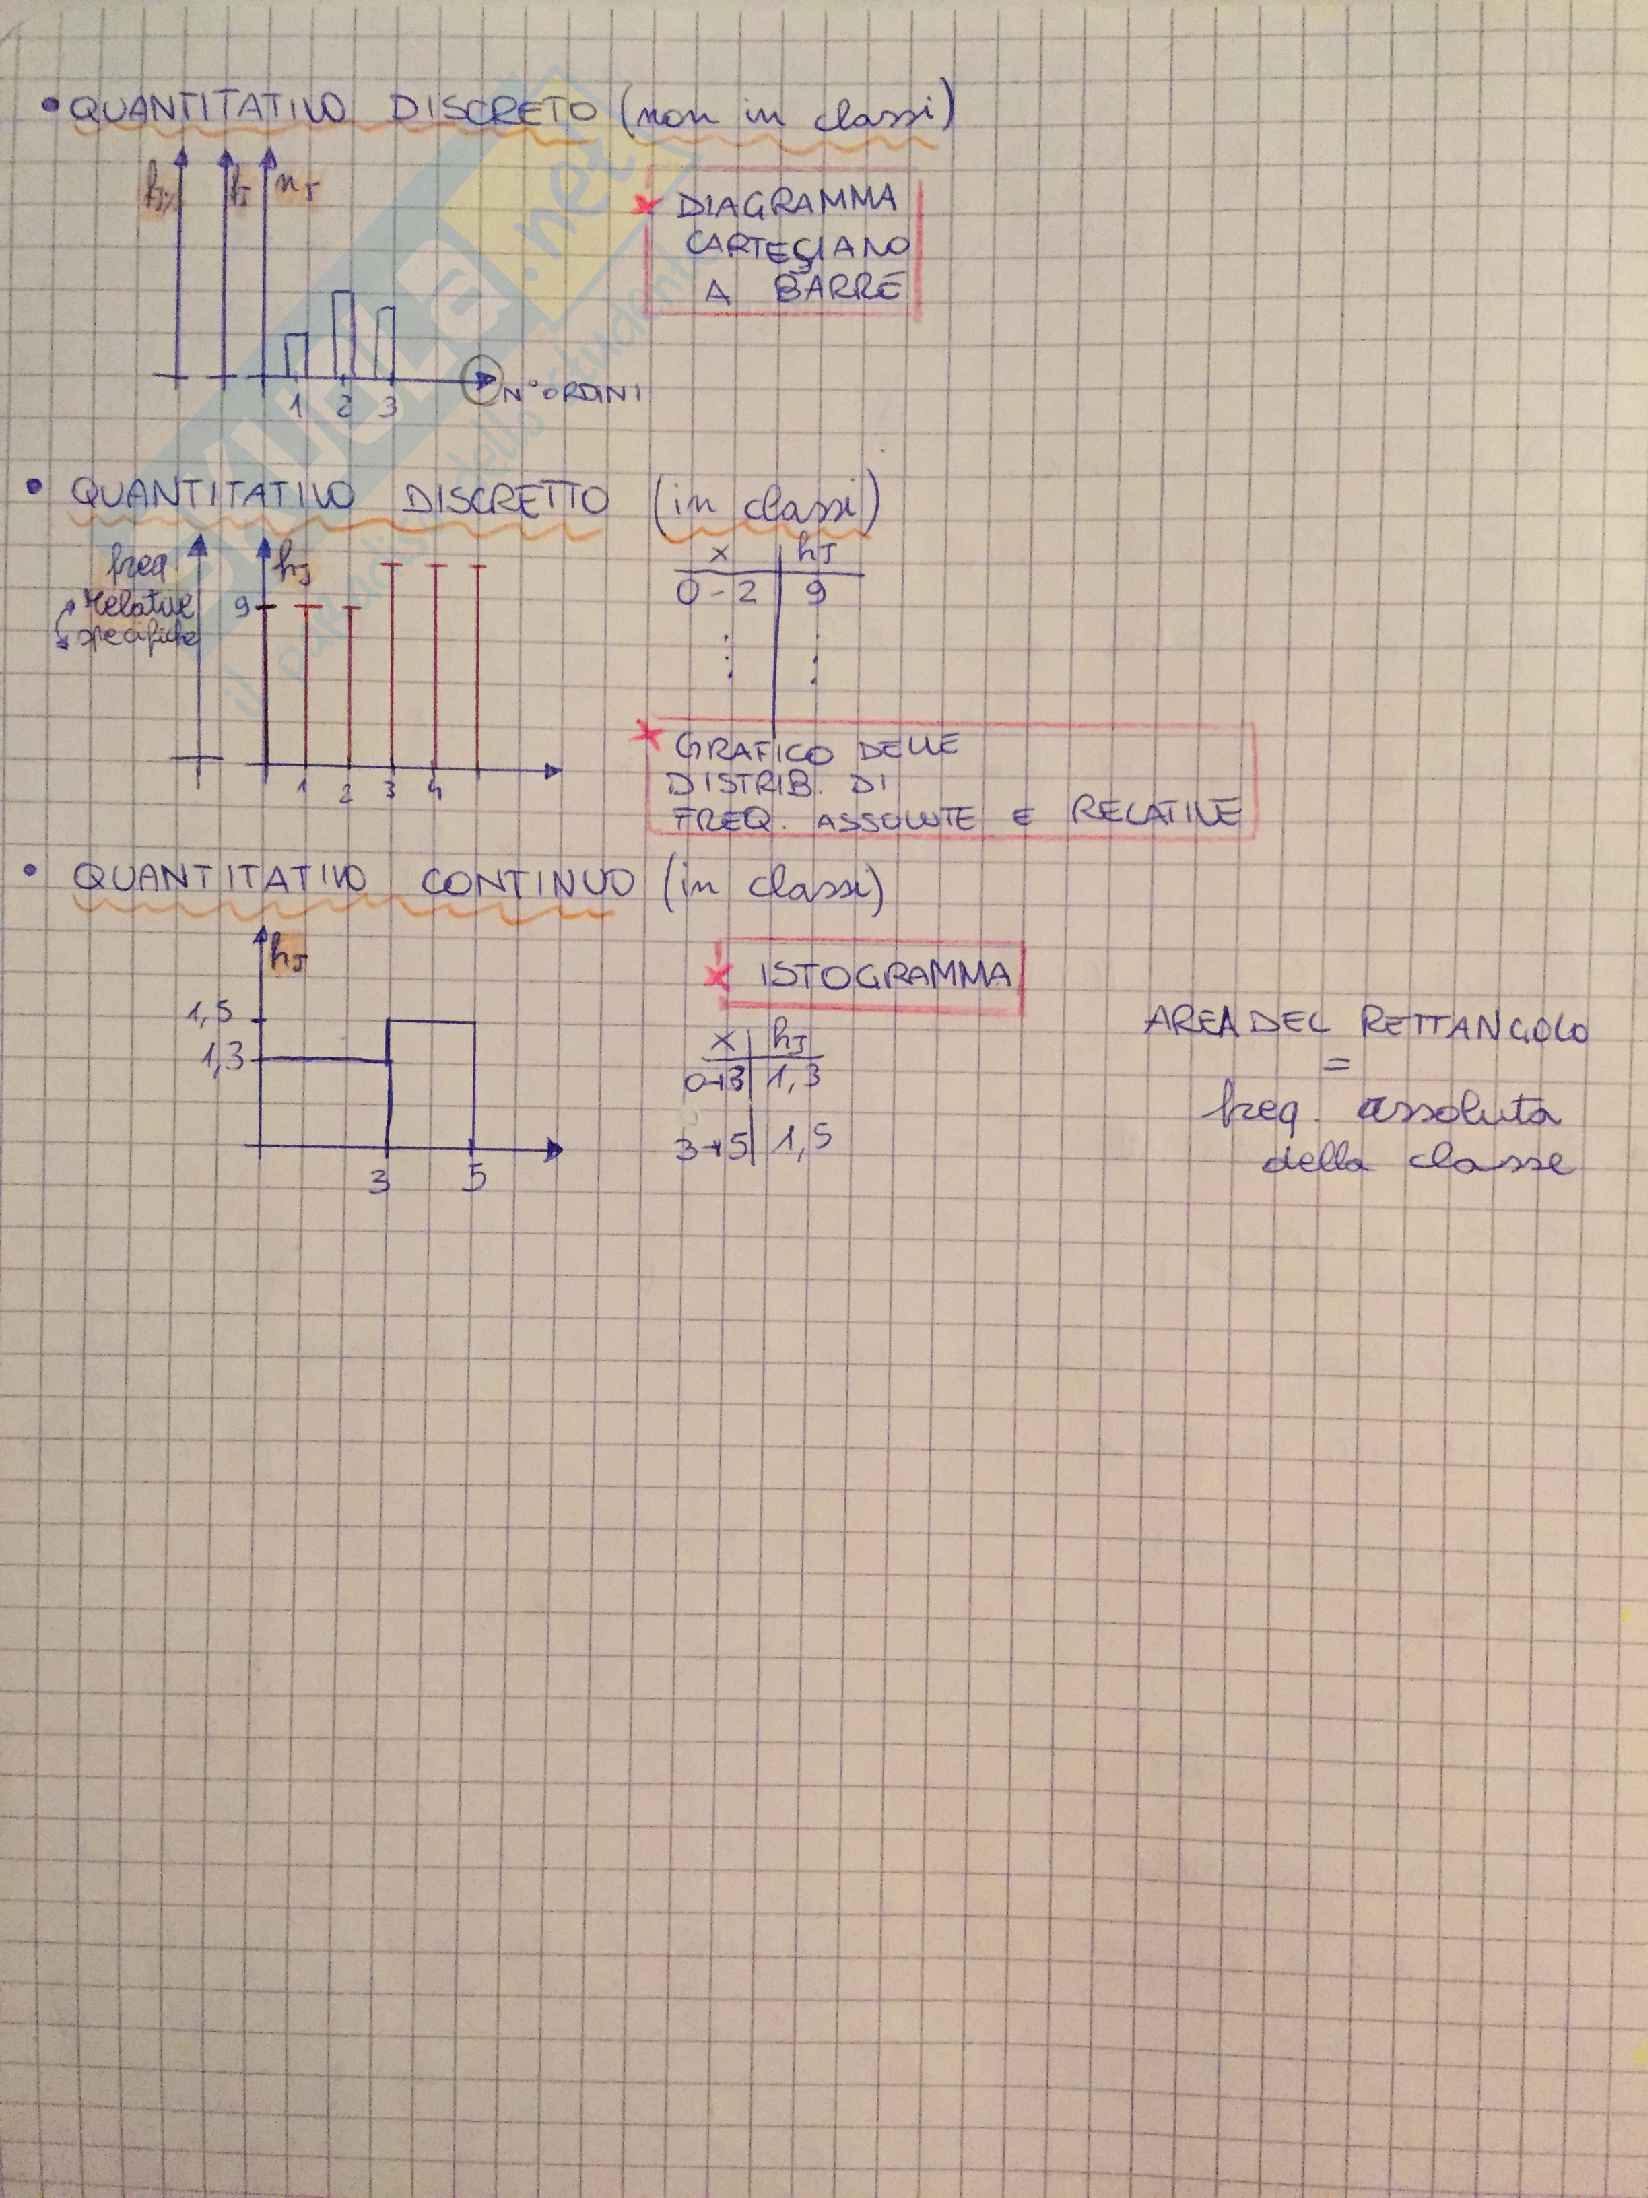 • QUANTITATIVO DISCRETO (non in classi)
fj% fj nj
* DIAGRAMMA
CARTESIANO
A BARRE
1 2 3 N° ORDINI
• QUANTITATIVO DISCRETTO (in classi)
freq relative specifiche
hj
9
1 2 3 4
x | hj
0 - 2 | 9
* GRAFICO DELLE
DISTRIB. DI
FREQ. ASSOLUTE E RELATIVE
• QUANTITATIVO CONTINUO (in classi)
hj
1,5
1,3
3 5
* ISTOGRAMMA
x | hj
0⊣3 | 1,3
3⊣5 | 1,5
AREA DEL RETTANGOLO
=
freq. assoluta
della classe